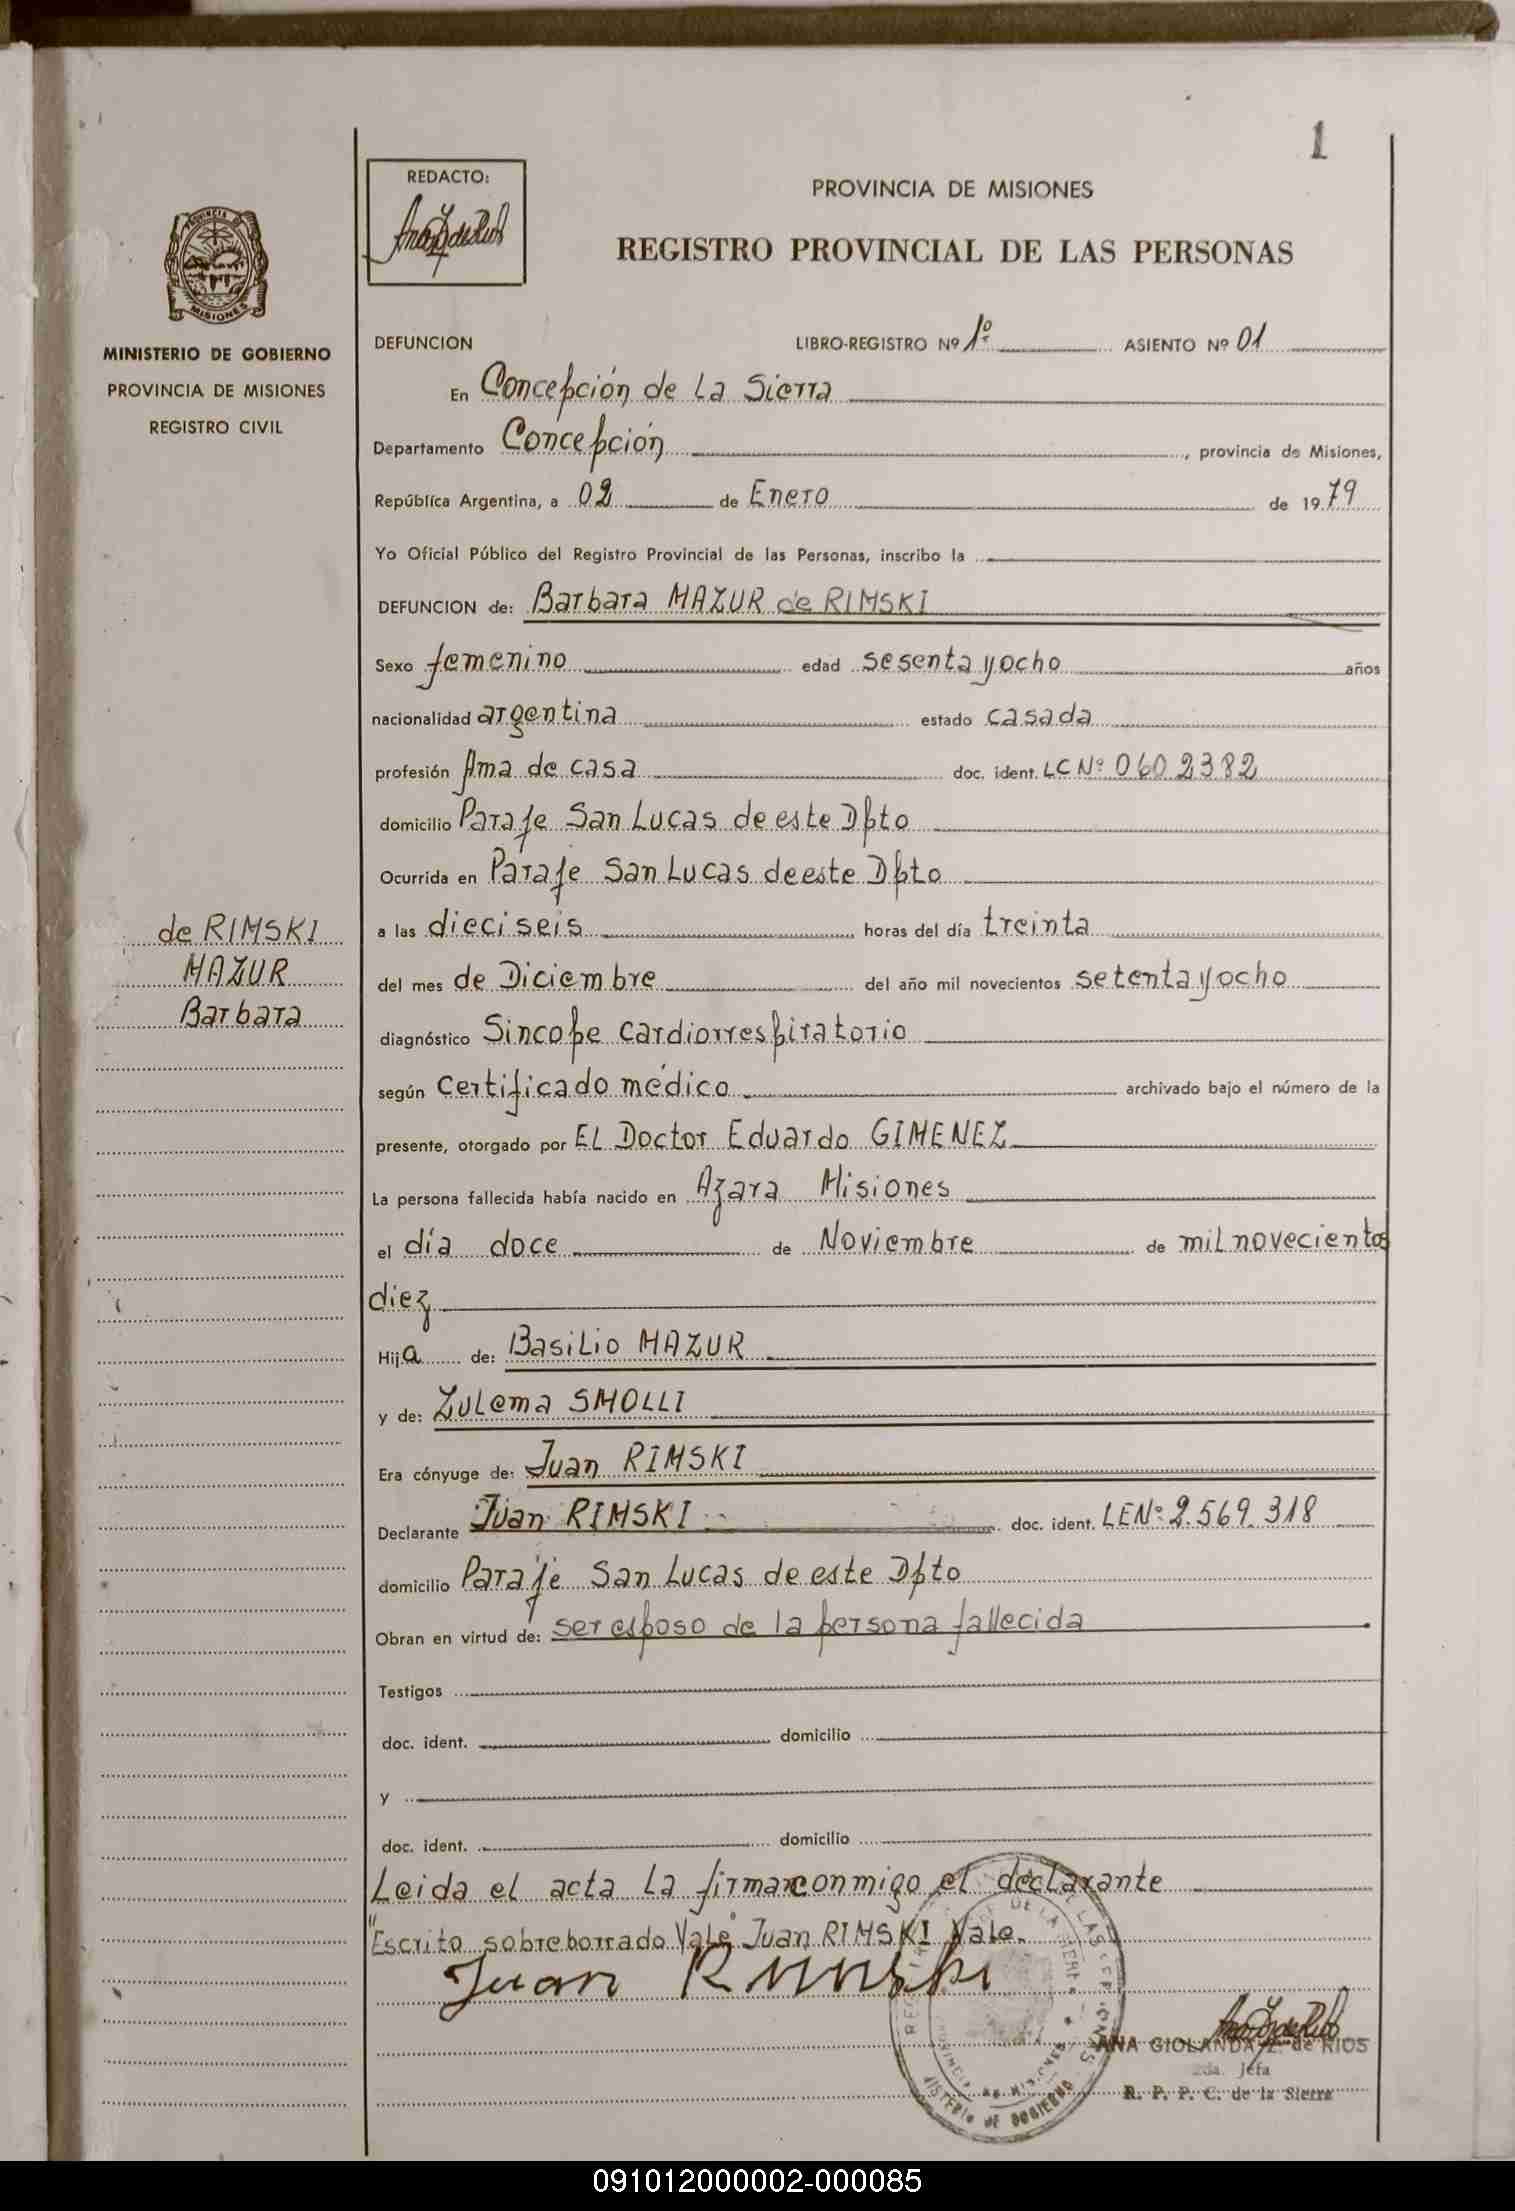 1
REDACTO:
PROVINCIA DE MISIONES
REGISTRO PROVINCIAL DE LAS PERSONAS
PROVINCIA DE
MISIONES
MINISTERIO DE GOBIERNO
PROVINCIA DE MISIONES
REGISTRO CIVIL
DEFUNCION LIBRO-REGISTRO Nº 1º ASIENTO Nº 01
En Concepción de La Sierra
Departamento Concepción, provincia de Misiones,
República Argentina, a 02 de Enero de 1979
Yo Oficial Público del Registro Provincial de las Personas, inscribo la
DEFUNCION de: Barbara MAZUR de RIMSKI
Sexo femenino edad sesenta y ocho años
nacionalidad argentina estado casada
profesión Ama de casa doc. ident. LC Nº 0602382
domicilio Paraje San Lucas de este Dpto
Ocurrida en Paraje San Lucas de este Dpto
de RIMSKI
MAZUR
Barbara
a las dieciseis horas del día treinta
del mes de Diciembre del año mil novecientos setenta y ocho
diagnóstico Sincope cardiorrespiratorio
según Certificado médico archivado bajo el número de la
presente, otorgado por EL Doctor Eduardo GIMENEZ
La persona fallecida había nacido en Azara Misiones
el día doce de Noviembre de mil novecientos
diez
Hija de: Basilio MAZUR
y de: Zulema SMOLLI
Era cónyuge de: Juan RIMSKI
Declarante Juan RIMSKI doc. ident. LE Nº 2.569.318
domicilio Paraje San Lucas de este Dpto
Obran en virtud de: ser esposo de la persona fallecida
Testigos
doc. ident. domicilio
y
doc. ident. domicilio
Leida el acta la firman conmigo el declarante
"Escrito sobreborrado Vale" Juan RIMSKI Vale.
Juan Rimski
ANA GIOLANDA Z. de RIOS
2da. Jefa
R. P. P. C. de la Sierra
091012000002-000085